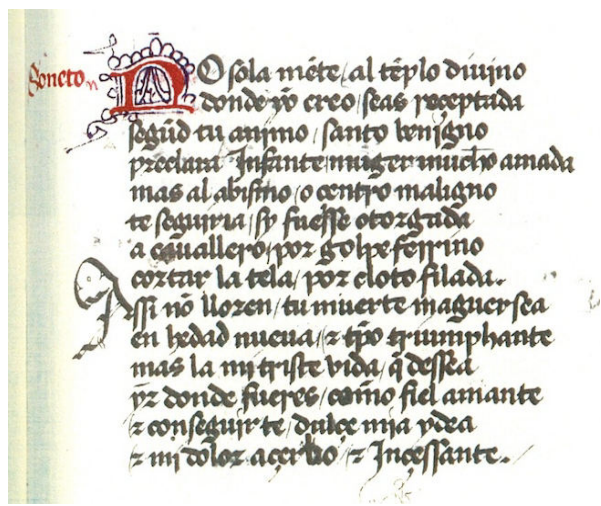 Soneto vi
NO sola mēte / al tēplo diuino
donde yo creo / seas reçeptada
segūd tu animo / santo benigno
preclara Infante / muger mucho amada
mas al abismo / o centro maligno
te seguiria / sy fuesse otorgada
a cauallero / por golpe ferrino
cortar la tela / por cloto filada.
Assi nō lloren / tu muerte maguer sea
en hedad nueua / ⁊ tp̄o triumphante
mas la mi triste vida / q̄ dessea
yr donde fueres / como fiel amante
⁊ conseguirte / dulçe mia ydea
⁊ mi dolor açerbo / ⁊ Inçessante.